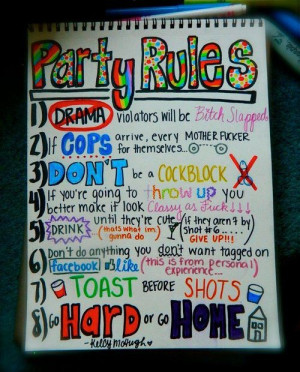 Party Rules
1) DRAMA violators will be Bitch Slapped
2) If COPS arrive, every MOTHER FUCKER
for themselves...
3) DON'T be a COCKBLOCK
4) If you're going to throw up you
better make it look Classy as Fuck↓↓↓
5) DRINK until they're cute (if they aren't by
(thats what im gunna do shot #6.....
GIVE UP!!!
6) Don't do anything you don't want tagged on
facebook like (this is from personal
experience...
7) TOAST BEFORE SHOTS
8) GO HARD or GO HOME